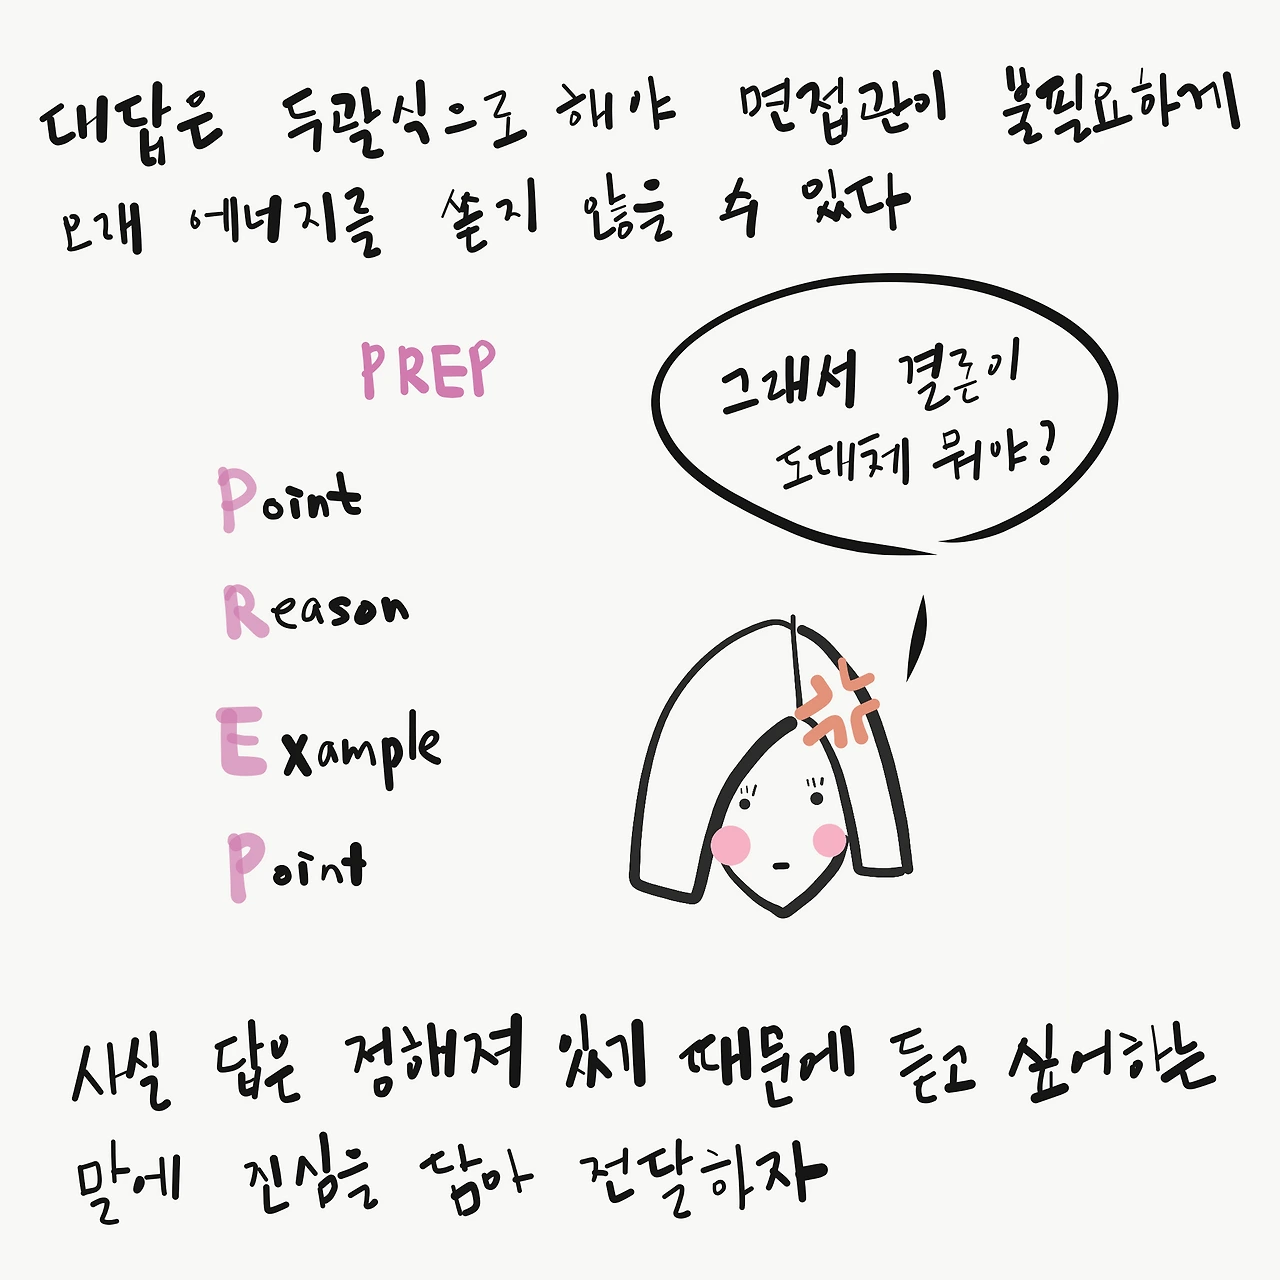 대답은 두괄식으로 해야 면접관이 불필요하게
오래 에너지를 쏟지 않을 수 있다
PREP
그래서 결론이
도대체 뭐야?
Point
Reason
Example
Point
사실 답은 정해져 있기 때문에 듣고 싶어하는
말에 진심을 담아 전달하자